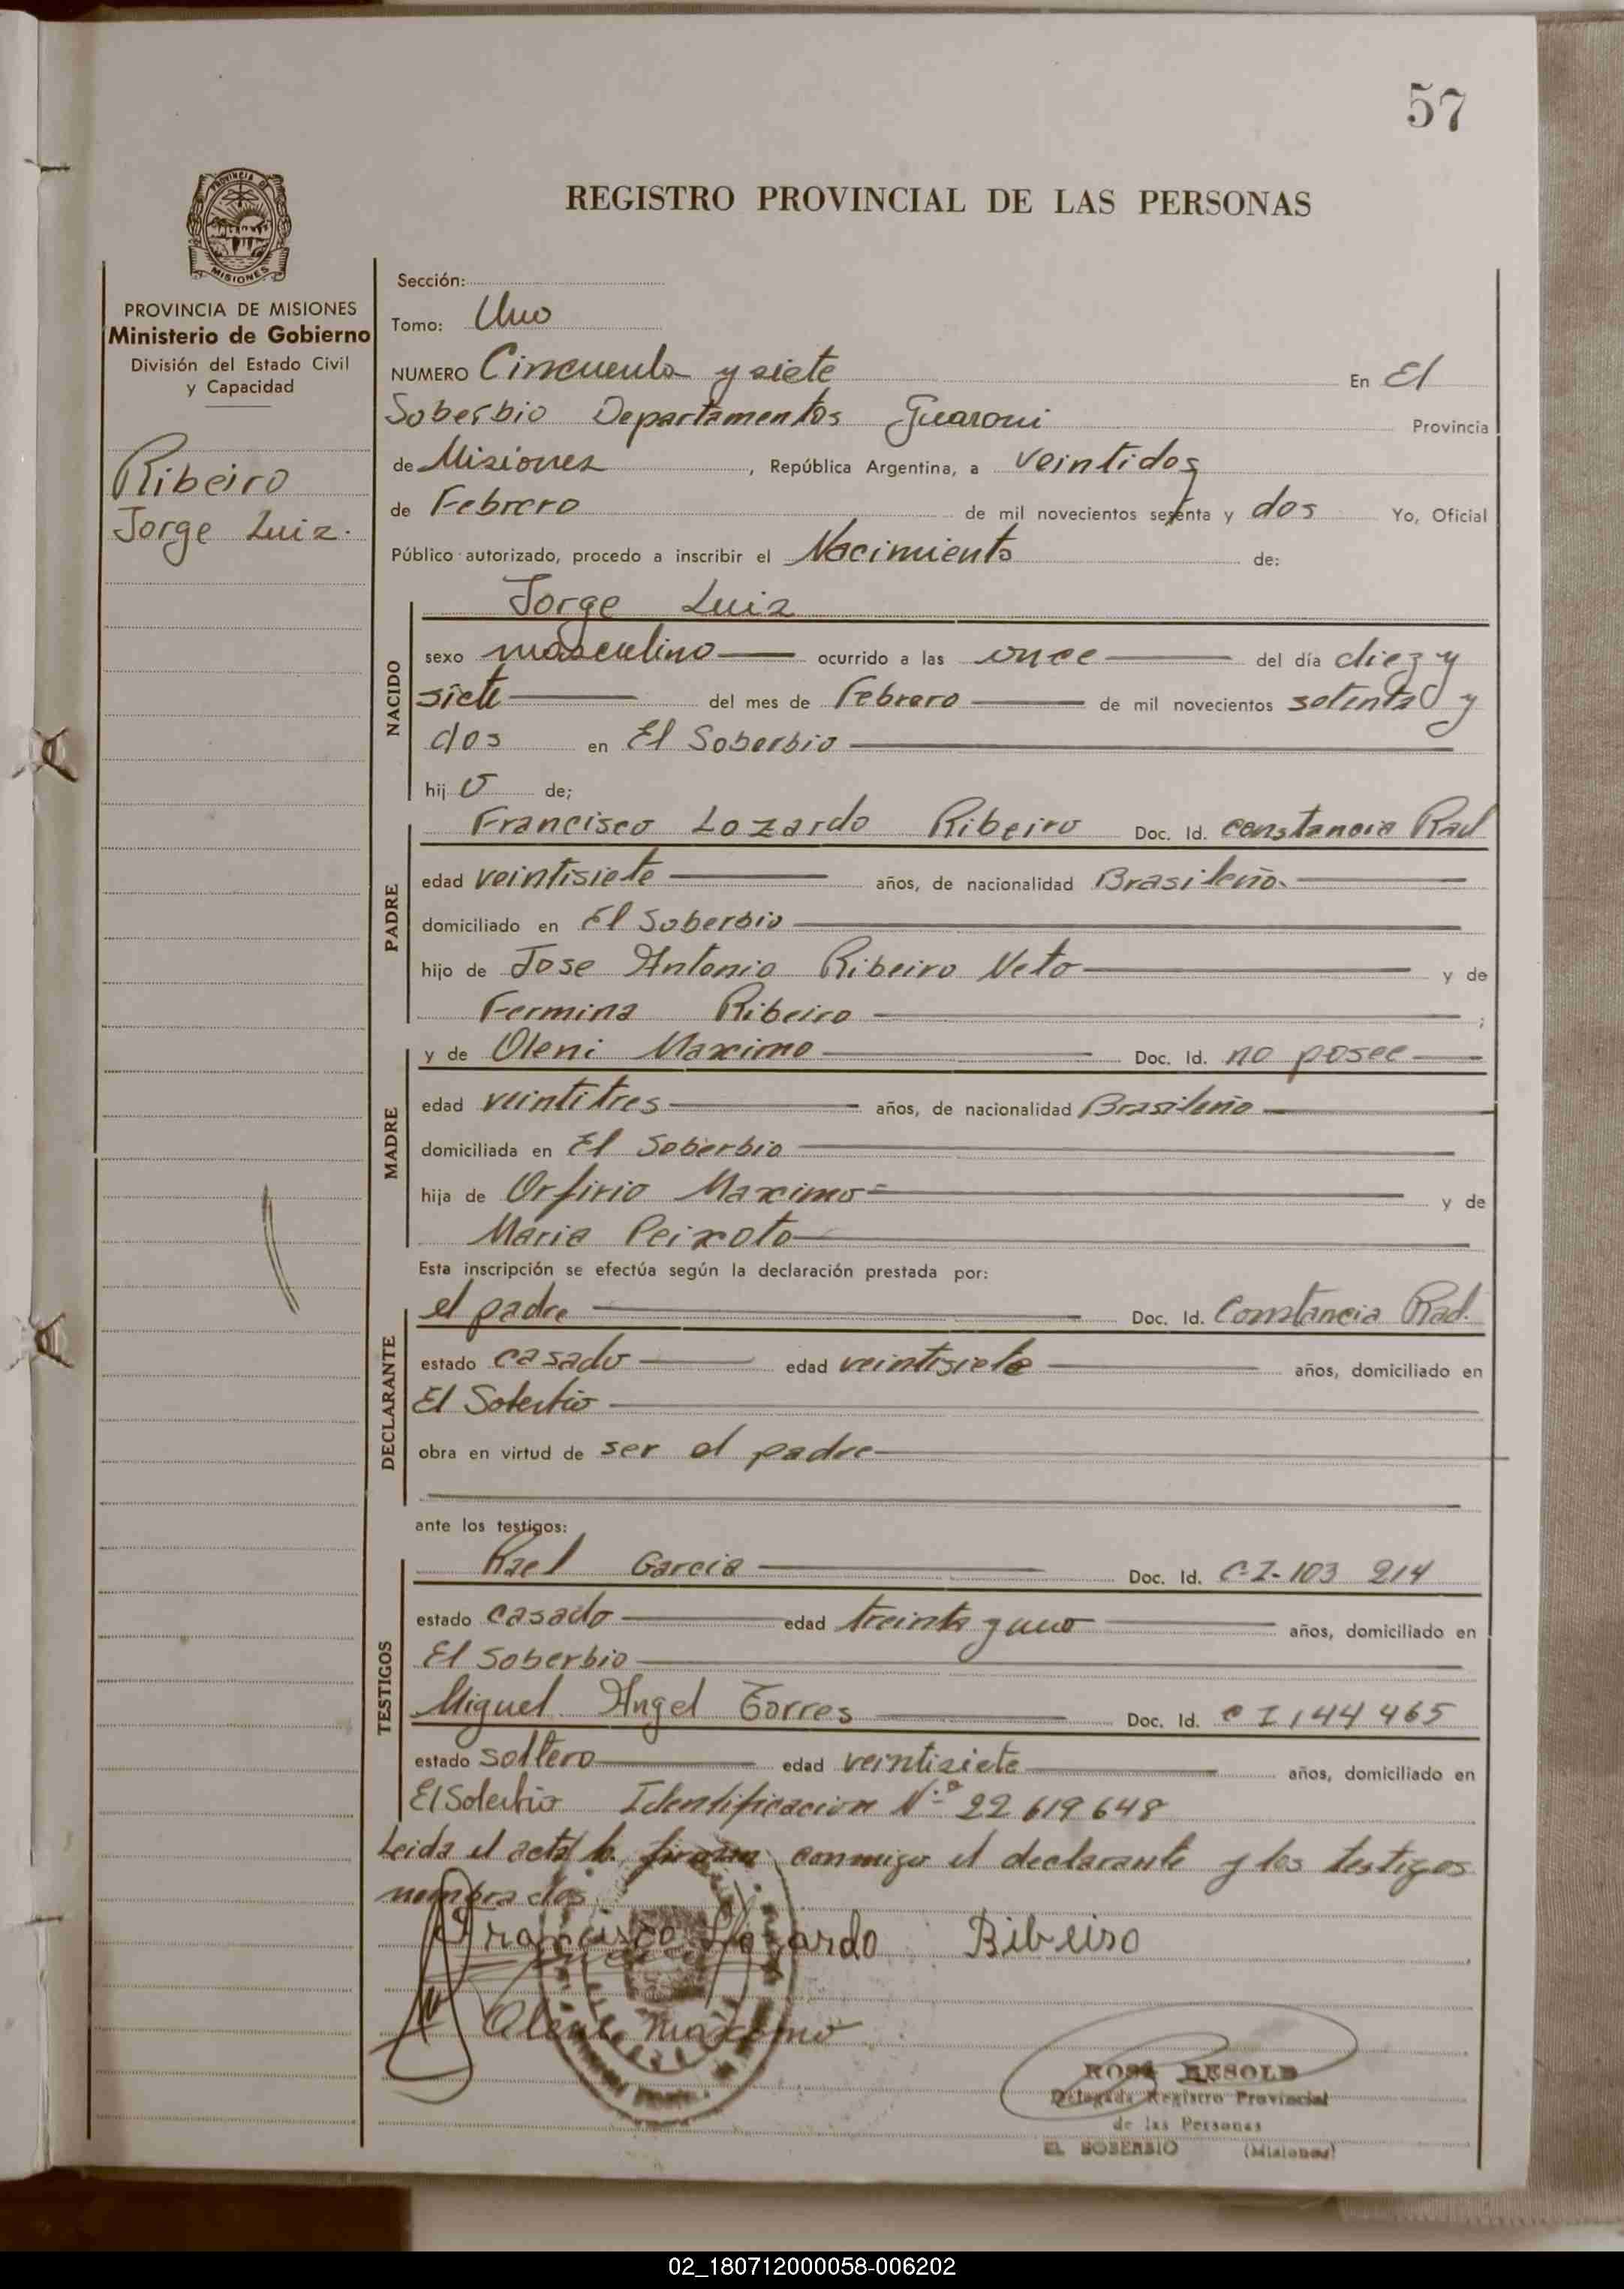 57
REGISTRO PROVINCIAL DE LAS PERSONAS
PROVINCIA DE MISIONES
PROVINCIA DE MISIONES
Ministerio de Gobierno
División del Estado Civil
y Capacidad
Ribeiro
Jorge Luiz.
Sección:
Tomo: Uno
NUMERO Cincuenta y siete En El
Soberbio Departamentos Guaroni Provincia
de Misiones, República Argentina, a veintidos
de Febrero de mil novecientos setenta y dos Yo, Oficial
Público autorizado, procedo a inscribir el Nacimiento de:
Jorge Luiz
NACIDO
sexo masculino ocurrido a las once del día diez y
siete del mes de Febrero de mil novecientos setenta y
dos en El Soberbio
hij o de;
PADRE
Francisco Lozardo Ribeiro Doc. Id. constancia Rad
edad veintisiete años, de nacionalidad Brasileño.
domiciliado en El Soberbio
hijo de Jose Antonio Ribeiro Neto y de
Fermina Ribeiro ;
MADRE
y de Oleni Maximo Doc. Id. no posee
edad veintitres años, de nacionalidad Brasileño
domiciliada en El Soberbio
hija de Orfirio Maximo y de
Maria Peixoto
Esta inscripción se efectúa según la declaración prestada por:
DECLARANTE
el padre Doc. Id. Constancia Rad.
estado casado edad veintisiete años, domiciliado en
El Soberbio
obra en virtud de ser el padre
ante los testigos:
TESTIGOS
Rael Garcia Doc. Id. C.I. 103 214
estado casado edad treinta y uno años, domiciliado en
El Soberbio
Miguel Angel Torres Doc. Id. C I 144 465
estado soltero edad veintisiete años, domiciliado en
El Soberbio Identificacion N.º 22 619 648
Leida el acta la firman conmigo el declarante y los testigos
nombrados
Francisco Lozardo Ribeiro
Oleni maximo
ROSA BESOLD
Delegada Registro Provincial
de las Personas
EL SOBERBIO (Misiones)
02_180712000058-006202